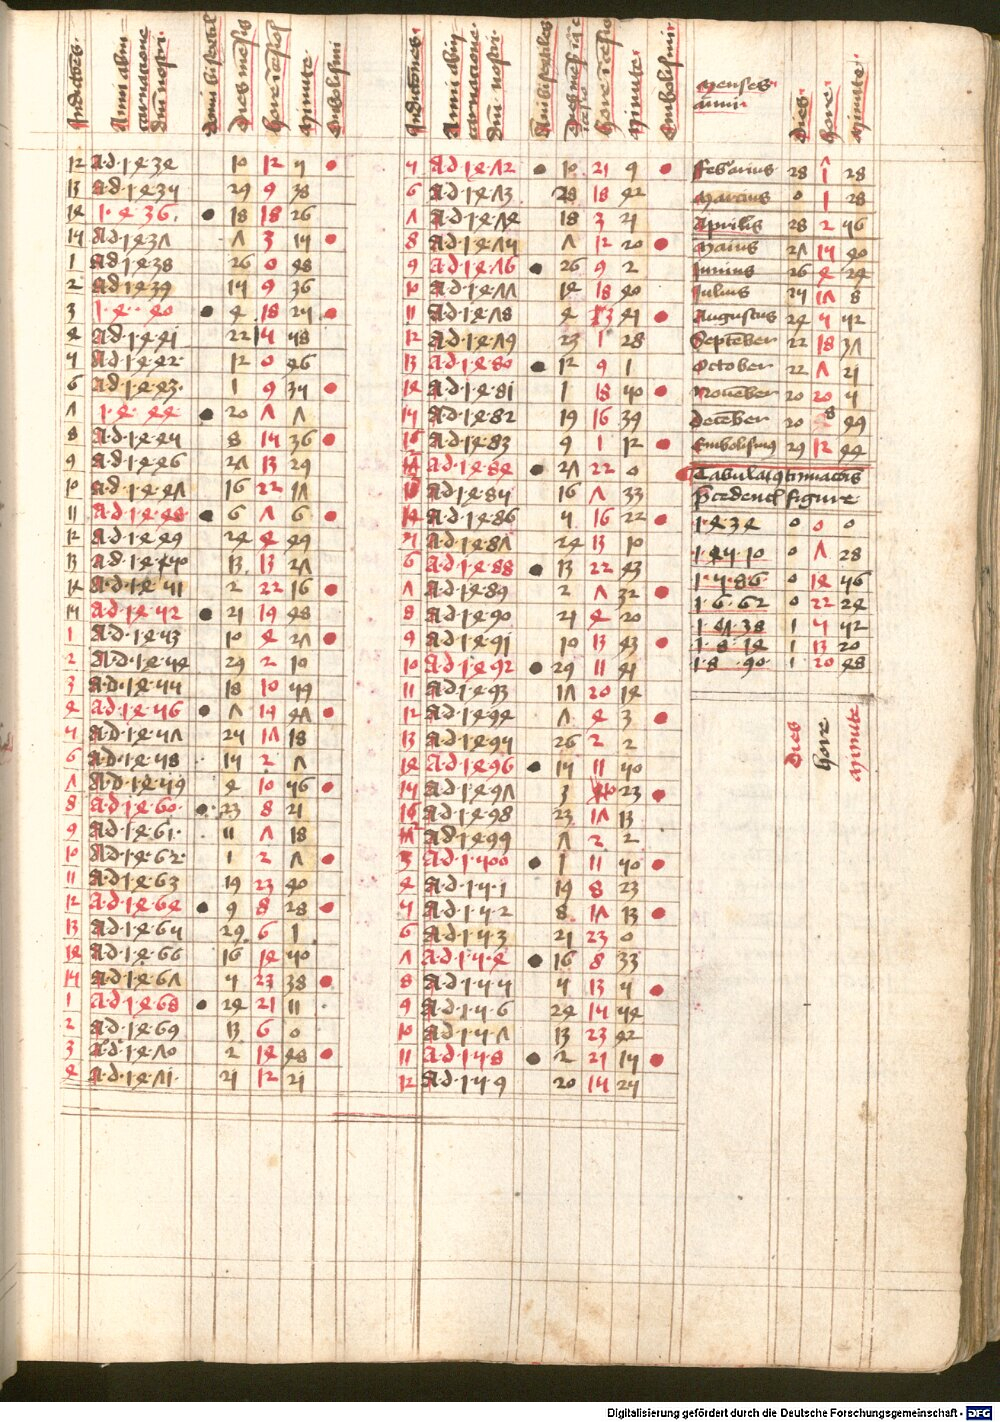 Indictiones. Anni ab in carnacione dni nostri. Anni bisextil Dies mensis hore incensiois Minute Embolismi
12 A.d.1434 10 12 5 ●
13 A.d.1435 29 9 38
14 1.436. ● 18 18 26
15 A.d.1437 7 3 15 ●
1 A.d.1438 26 0 48
2 A.d.1439 15 9 36
3 1.4.40 ● 4 18 25 ●
4 A.d.1.4.41 22 15 58
5 A.d.1.4.42. 12 0 46
6 A.d.1.4.43. 1 9 35 ●
7 1.4.44 ● 20 7 7
8 A.d.1.4.45 8 15 36 ●
9 A.d.1.4.46 27 13 29
10 A.d.1.4.47 16 22 17
11 A.d.1.4.48 ● 6 7 6 ●
12 A.d.1.4.49 24 4 49
13 A.d.1.4.50 13 13 27
14 A.d.1.4.51 2 22 16 ●
15 A.d.1.4.52 ● 21 19 48
1 A.d.1.4.53 10 4 27 ●
2 A.d.1.4.54 29 2 10
3 A.d.1.4.55 18 10 59
4 A.d.1.4.56 ● 7 19 47 ●
5 A.d.1.4.57 25 17 18
6 A.d.1.4.58 15 2 7
7 A.d.1.4.59 4 10 56 ●
8 A.d.1.4.60. ● 23 8 21
9 A.d.1.4.61. 11 7 18
10 A.d.1.4.62. 1 2 7 ●
11 A.d.1.4.63 19 23 40
12 A.d.1.4.64 ● 9 8 28 ●
13 A.d.1.4.65 29 6 1
14 A.d.1.4.66 16 14 50
15 A.d.1.4.67 5 23 38 ●
1 A.d.1.4.68 ● 24 21 11
2 A.d.1.4.69 13 6 0
3 A.d.1.4.70 2 14 48 ●
4 A.d.1.4.71. 21 12 21
Indictiones. Anni ab in carnacione. dni. nostri. Anni bisextiles Dies mensis incensio hore incensiois Minute. Embolismi
5 A.d.1.4.72 ● 10 21 9 ●
6 A.d.1.4.73 28 18 42
7 A.d.1.4.74 18 3 21
8 A.d.1.4.75 7 12 20 ●
9 A.d.1.4.76 ● 26 9 2
10 A.d.1.4.77 14 18 40
11 A.d.1.4.78 4 3 41 ●
12 A.d.1.4.79 23 1 28
13 A.d.1.4.80 ● 12 9 1
14 A.d.1.4.81 1 18 50 ●
15 A.d.1.4.82 19 16 39
A.d.1.4.83 9 1 12 ●
A.d.1.4.84 ● 27 22 0
A.d.1.4.85 16 7 33
A.d.1.4.86 5 16 22 ●
A.d.1.4.87 24 13 10
6 A.d.1.4.88 ● 13 22 43
7 A.d.1.4.89 2 7 32 ●
8 A.d.1.4.90 21 4 20
9 A.d.1.4.91 10 13 43 ●
10 A.d.1.4.92 ● 29 11 41
11 A.d.1.4.93 17 20 14
12 A.d.1.4.94 7 4 3 ●
13 A.d.1.4.95 26 2 2
14 A.d.1.4.96 ● 15 11 50
15 A.d.1.4.97 3 23 ●
A.d.1.4.98 23 17 13
A.d.1.4.99 7 2 2
3 A.d.1.500 ● 1 11 50 ●
4 A.d.1.5.1 19 8 23
5 A.d.1.5.2 8 17 13 ●
6 A.d.1.5.3 21 23 0
7 A.d.1.5.4 ● 16 8 33
8 A.d.1.5.5 5 13 5 ●
9 A.d.1.5.6 24 15 54
10 A.d.1.5.7 13 23 42
11 A.d.1.5.8 ● 2 21 15 ●
12 A.d.1.5.9 20 15 25
Menses anni. Dies. hore. Minute.
Februarius 28 1 28
Marcius 0 1 28
Aprilis 28 2 56
Maius 27 15 40
Iunius 26 4 24
Iulius 25 17 8
Augustus 24 5 52
September 22 18 37
October 22 7 21
Nouember 20 20 5
december 20 8 49
Embolismus 29 12 44
Tabula continuacionis
precedencis figure
1.4.34 0 0 0
1.5.10 0 7 28
1.5.86 0 14 56
1.6.62 0 22 24
1.7.38 1 5 52
1.8.14 1 13 20
1.8.90. 1 20 48
Dies hore Minute
Digitalisierung gefördert durch die Deutsche Forschungsgemeinschaft - DFG